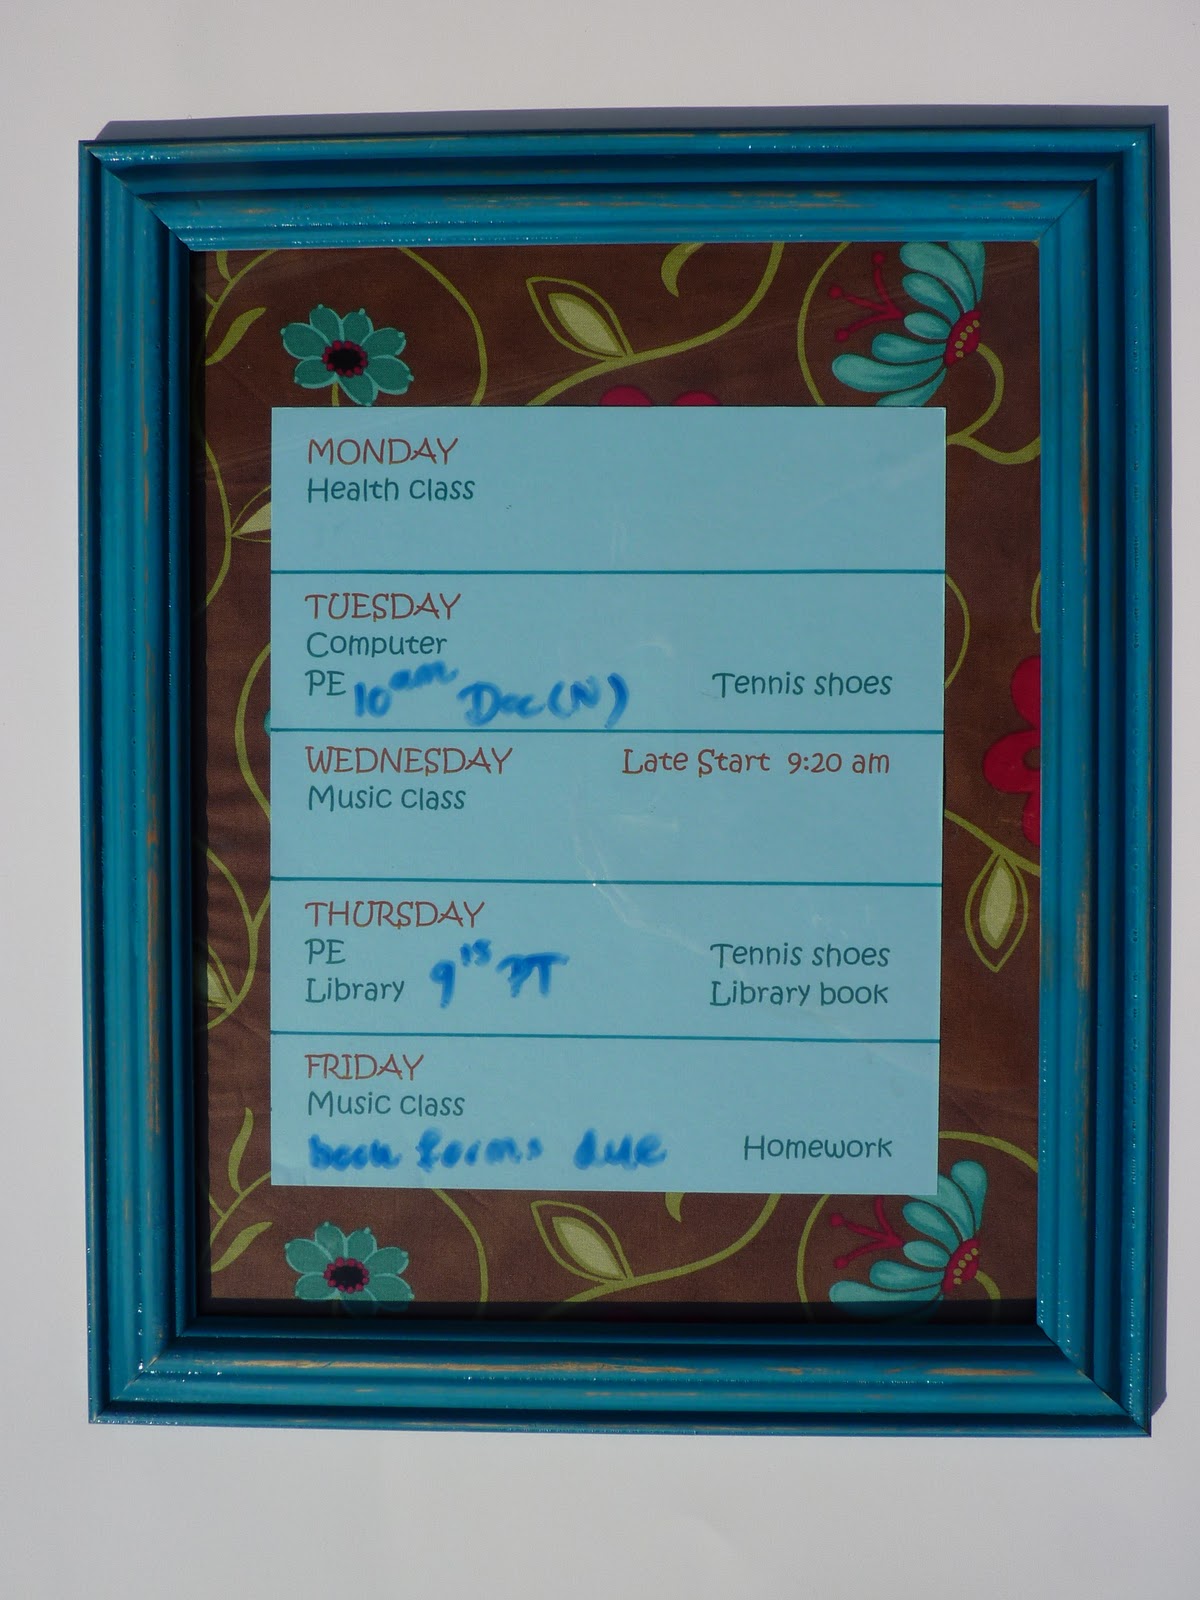 MONDAY
Health class
TUESDAY
Computer
PE 10am Doc (N) Tennis shoes
WEDNESDAY Late Start 9:20 am
Music class
THURSDAY
PE Tennis shoes
Library 9 15 PT Library book
FRIDAY
Music class
book forms due Homework